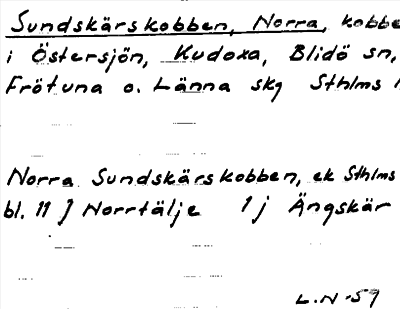 Sundskärskobben, Norra, kobbe
i Östersjön, Kudoxa, Blidö sn,
Frötuna o. Länna skg Sthlms
Norra Sundskärskobben, ek Sthlms
bl. 11 J Norrtälje 1 j Ängskär
L.N -59